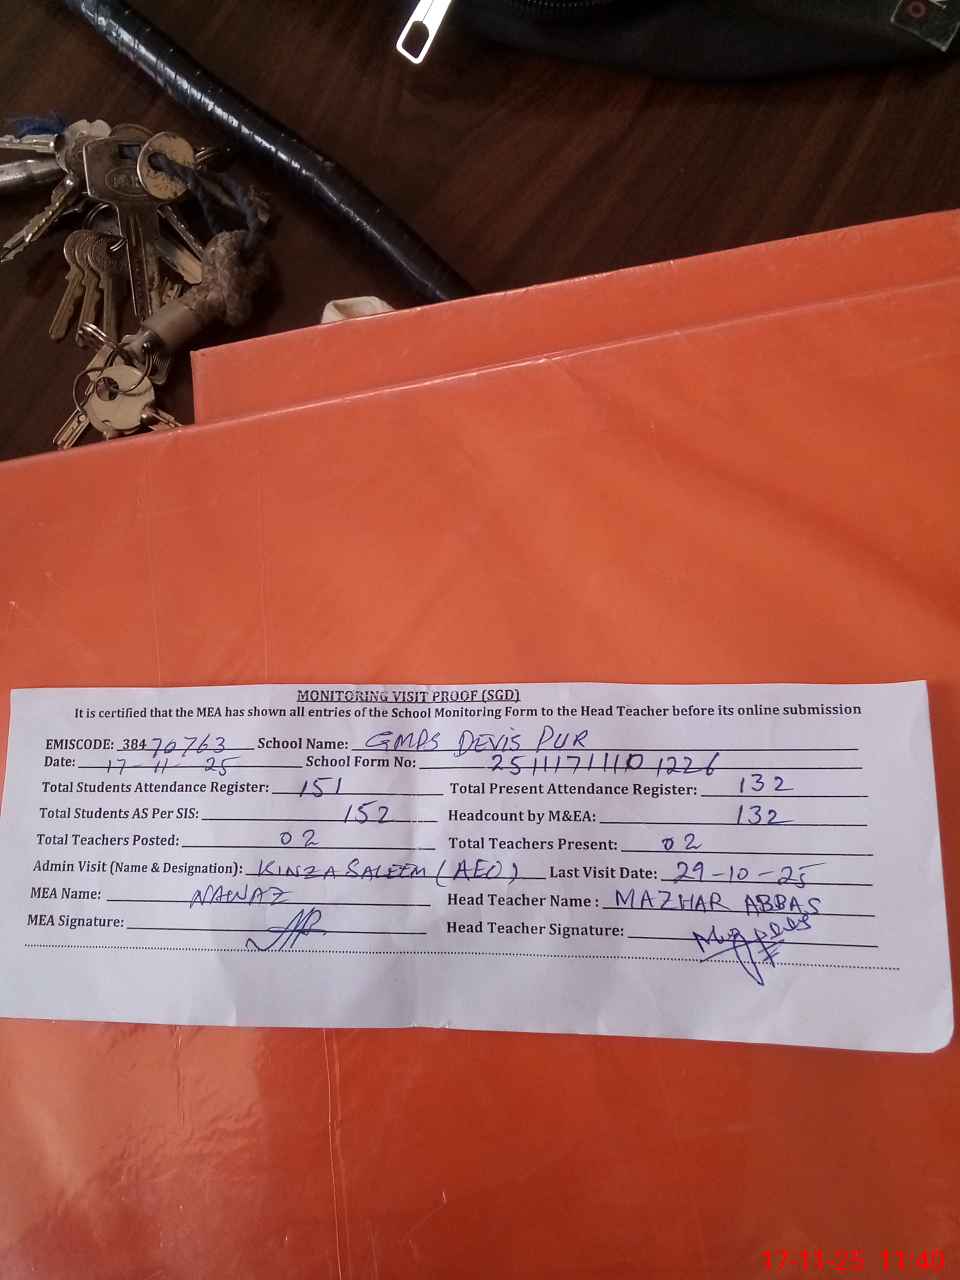 MONITORING VISIT PROOF (SGD)
It is certified that the MEA has shown all entries of the School Monitoring Form to the Head Teacher before its online submission
EMISCODE: 38470763 School Name: GMPS DEVIS PUR
Date: 17-11-25 School Form No: 2511171110 1226
Total Students Attendance Register: 151 Total Present Attendance Register: 132
Total Students AS Per SIS: 152 Headcount by M&EA: 132
Total Teachers Posted: 02 Total Teachers Present: 02
Admin Visit (Name & Designation): KINZA SALEEM (AEO) Last Visit Date: 29-10-25
MEA Name: NAWAZ Head Teacher Name : MAZHAR ABBAS
MEA Signature: Head Teacher Signature:
17-11-25 11:40